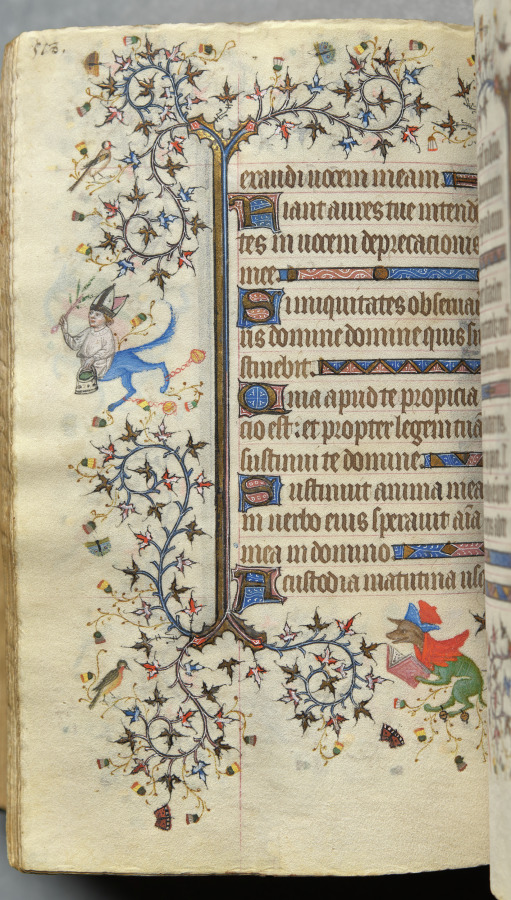 exaudi uocem meam
Fiant aures tue intend
tes in uocem deprecacionis
mee
Si iniquitates obserua
ris domine domine quis su
stinebit.
Quia apud te propicia
cio est: et propter legem tua
sustinui te domine.
Sustinuit anima mea
in uerbo eius sperauit aīa
mea in domino
A custodia matutina us